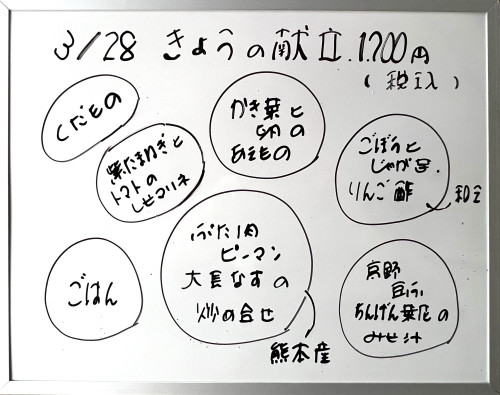 3/28 きょうの献立 1,700円
(税込)
くだもの
紫たまねぎと
トマトの
しせマリネ
かき菜と
卵の
あえもの
ごぼうと
じゃが芋.
りんご酢
和え
ごはん
ぶた肉
ピーマン
大長なすの
炒め合せ
熊本産
京野
豆ふ
あんげん菜花の
みせ汁